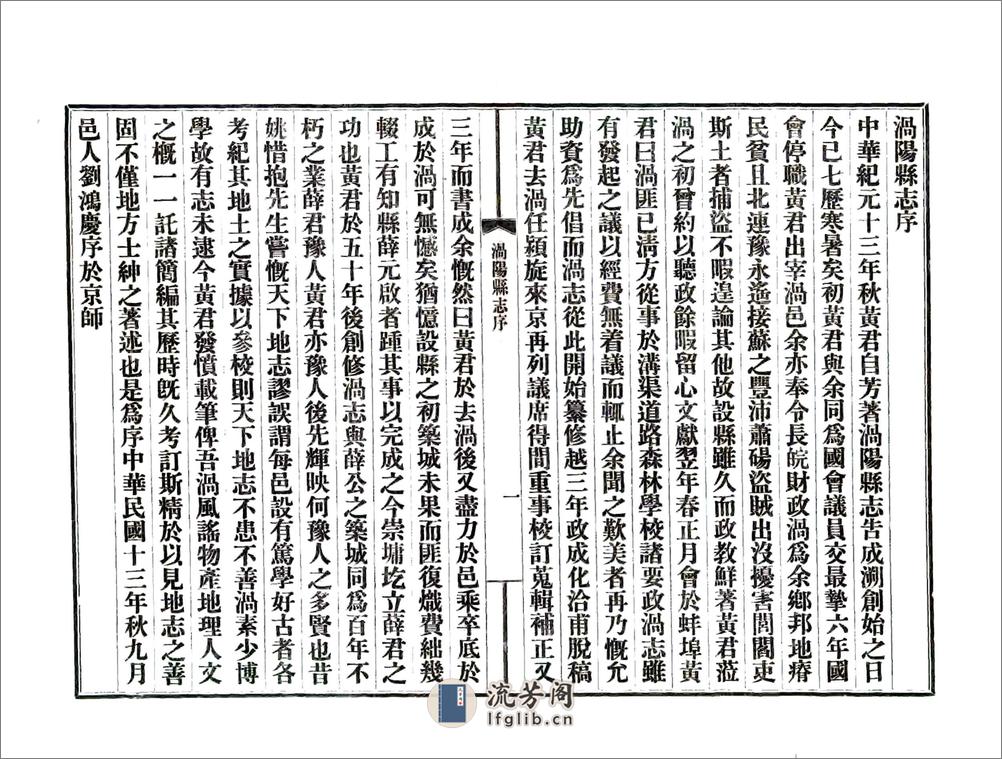 渦陽縣志序
中華紀元十三年秋黃君自芳著渦陽縣志告成溯創始之日
今已七歷寒暑矣初黃君與余同為國會議員交最摯六年國
會停職黃君出宰渦邑余亦奉令長皖財政渦為余鄉邦地瘠
民貧且北連豫永遙接蘇之豐沛蕭碭盜賊出沒擾害閭閻吏
斯土者捕盜不暇遑論其他故設縣雖久而政教鮮著黃君蒞
渦之初曾約以聽政餘暇留心文獻翌年春正月會於蚌埠黃
君曰渦匪已淸方從事於溝渠道路森林學校諸要政渦志雖
有發起之議以經費無着議而輒止余聞之歎美者再乃慨允
助資爲先倡而渦志從此開始纂修越三年政成化洽甫脫稿
黃君去渦任潁旋來京再列議席得間重事校訂蒐輯補正又
渦陽縣志序
一
三年而書成余慨然曰黃君於去渦後又盡力於邑乘卒底於
成於渦可無憾矣猶憶設縣之初築城未果而匪復熾費絀幾
輟工有知縣薛元啟者踵其事以完成之今崇墉圪立薛君之
功也黃君於五十年後創修渦志與薛公之築城同爲百年不
朽之業薛君豫人黃君亦豫人後先輝映何豫人之多賢也昔
姚惜抱先生嘗慨天下地志謬誤謂每邑設有篤學好古者各
考紀其地土之實據以參校則天下地志不患不善渦素少博
學故有志未逮今黃君發憤載筆俾吾渦風謠物產地理人文
之概一一託諸簡編其歷時旣久考訂斯精於以見地志之善
固不僅地方士紳之著述也是爲序中華民國十三年秋九月
邑人劉鴻慶序於京師
流芳阁
lfglib.cn